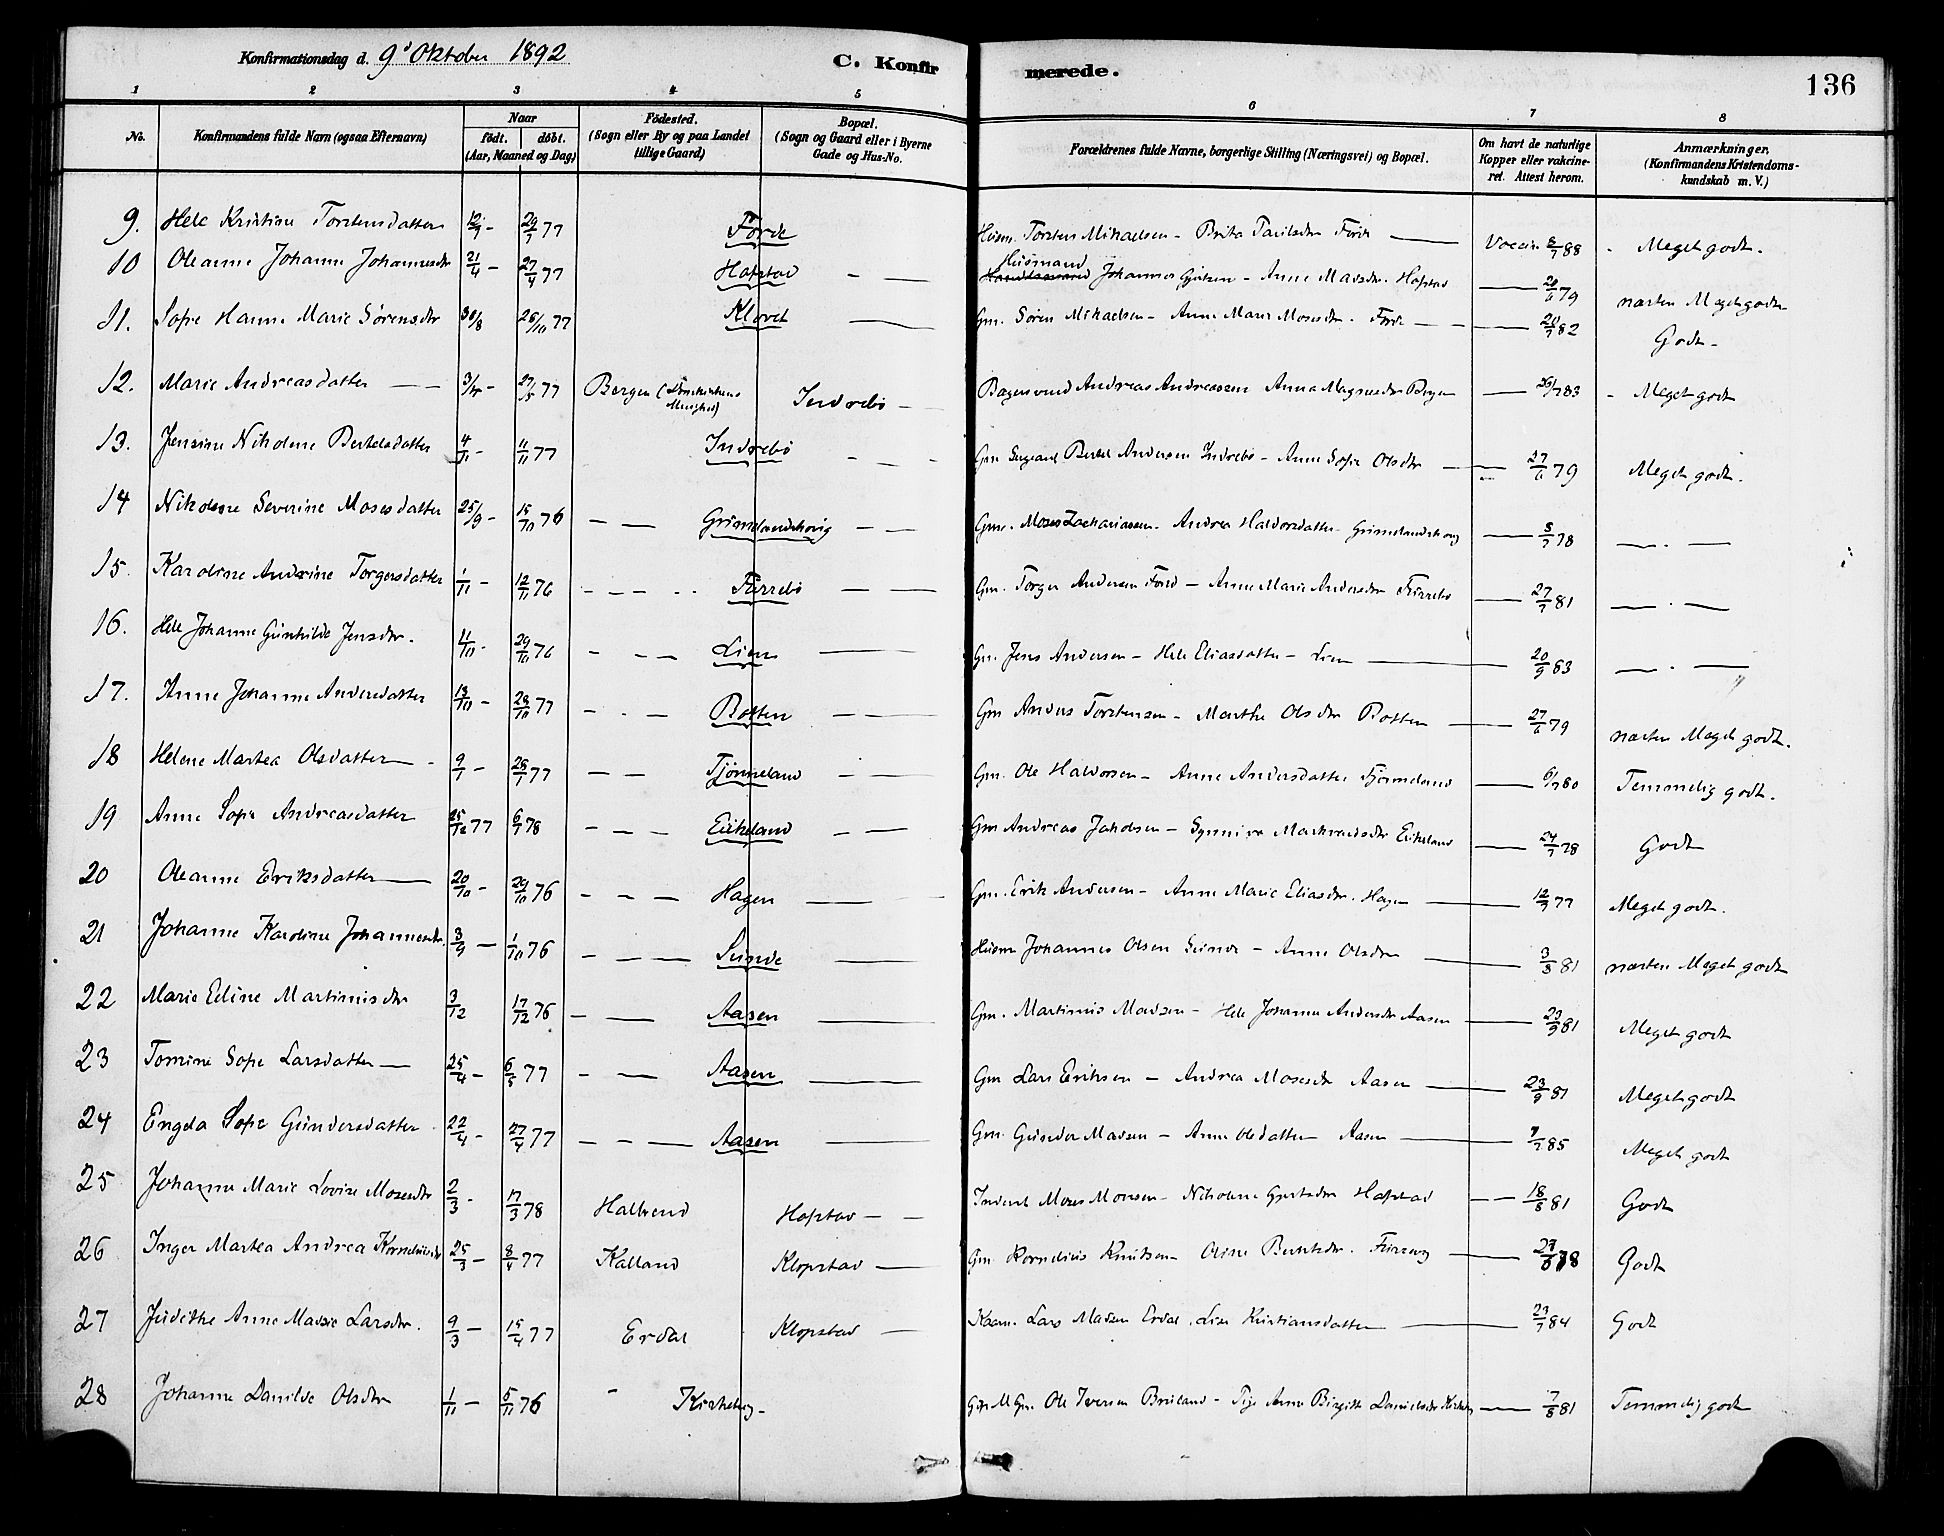 Konfirmationsdag d. 9' Oktober 1892 C. Konfirmerede. 136
1 2 3 4 5 6 7 8
No. Konfirmandens fulde Navn (ogsaa Efternavn) Naar født. døbt. (Aar, Maaned og Dag) Fødested. (Sogn eller By og paa Landet tillige Gaard) Bopæl. (Sogn og Gaard eller i Byerne Gade og Hus-No. Forældrenes fulde Navne, borgerlige Stilling (Næringsvei) og Bopæl. Om havt de naturlige Kopper eller vakcineret. Attest herom. Anmærkninger, (Konfirmandens Kristendomskundskab m. V.)
9. Hele Kristine Torstensdatter 12/7 - 29/7 77 Førde Husm. Torsten Mikaelsen - Brita Paulsdtr Førde — Vaccin 8/7 88 - Meget godt.
10 Oleanne Johanne Johannesdtr 21/4 - 27/4 77 Hafstad - — Husmand Johannes Gjertsen - Anne Madsdtr. Hafstad — 20/6 79 næsten Meget godt
11. Sofie Hanne Marie Sørensdtr 30/8 26/10 77 Klovet — Gm. Søren Mikaelsen - Anne Marie Mosesdtr. Førde — - — 20/7 82 Godt -
12. Marie Andreasdatter — — 3/5 - 27/5 77 Bergen (Domkirkens Menighed) Indrebø — Bagersvend Andreas Andreassen Anna Magnusdtr Bergen — 26/7 83 - Meget godt
13. Jensine Nikoline Bertelsdatter 4/11 - 11/11 77 Indrebø - - - Gm Sergeant Bertel Andersen Indrebø - Anne Sofie Olsdtr — — 27/6 79 Meget godt.
14 Nikoline Severine Mosesdatter 25/9 - 15/10 76 — — Grimelandshoug — — Gm. Moses Zachariassen - Andrea Haldorsdatter - Grimelandshoug — 8/7 78 — . —
15. Karoline Andrine Torgersdatter 1/11 - 12/11 76 - — - . . Furrebø — — Gm. Torger Andersen Førd — Anne Marie Andersdtr Furrebø — 27/7 81 — . —
16. Hele Johanne Gunhilde Jensdtr. 11/10 - 29/10 76 - — — Lien — — Gm. Jens Andersen - Hele Eliasdatter - Lien — 20/9 83 — . —
17. Anne Johanne Andersdatter 13/10 - 28/10 77 - . — Botten — — Gm Anders Torstensen - Marthe Olsdtr Botten — 27/6 79 næsten Meget godt.
18 Helene Martea Olsdatter — - 9/1 - 28/1 77 — — Tjønneland - — Gm. Ole Haldorsen - Anne Andersdatter Tjønneland — 6/7 80 Temmelig godt.
19 Anne Sofie Andreasdatter 25/12 77 6/1 78 - — — Eikeland - — Gm Andreas Jakobsen - Synnive Markvardsdtr Eikeland — 24/7 78 Godt
20 Oleanne Eriksdatter — 20/10 - 29/10 76 - — — Hagen — — Gm. Erik Andersen - Anne Marie Eliasdtr. Hagen — 12/9 77 Meget godt.
21 Johanne Karoline Johannesdtr. 3/9 — 1/10 76 - — — Sunde — — Husm Johannes Olsen Sunde - Anne Olsdtr — 3/8 81 næsten Meget godt
22 Marie Edine Martinusdtr 3/12 17/12 76 - — Aasen — Gm. Martinus Madsen - Hele Johanne Andersdtr Aasen — 23/9 81 Meget godt
23 Tomine Sofie Larsdatter — 25/4 - 6/5 77 - — Aasen — Gm Lars Eriksen - Andrea Mosesdtr Aasen — 23/9 81 Meget godt
24 Engda Sofie Gundersdatter . 22/4 - 27/4 77 - — — Aasen — Gm. Gunder Madsen - Anne Olsdatter Aasen — 7/7 85 Meget godt
25 Johanne Marie Lovise Mosesdtr 2/3 - 17/3 78 Halbrend Hafstad — — Inderst Moses Monsen - Nikoline Gjertsdtr Hafstad — — 18/8 81 Godt
26 Inger Martea Andrea Korneliusdtr 25/3 - 8/4 77 Kalland Klopstad — Gm. Kornelius Knutsen - Oline Berntsdtr. — 27/6 78 Godt
27 Judithe Anne Madsie Larsdtr. 9/3 - 15/4 77 Erdal Klopstad — Kaarm. Lars Madsen Erdal, Lise Kristiansdatter — 23/7 84 Godt
28 Johanne Danilde Olsdtr 1/11 - 5/11 76 - Kirkeby - Ole Iversen Bruland - Pige Anne Birgitte Danielsdtr Kirkeby — 7/8 81 Temmelig godt